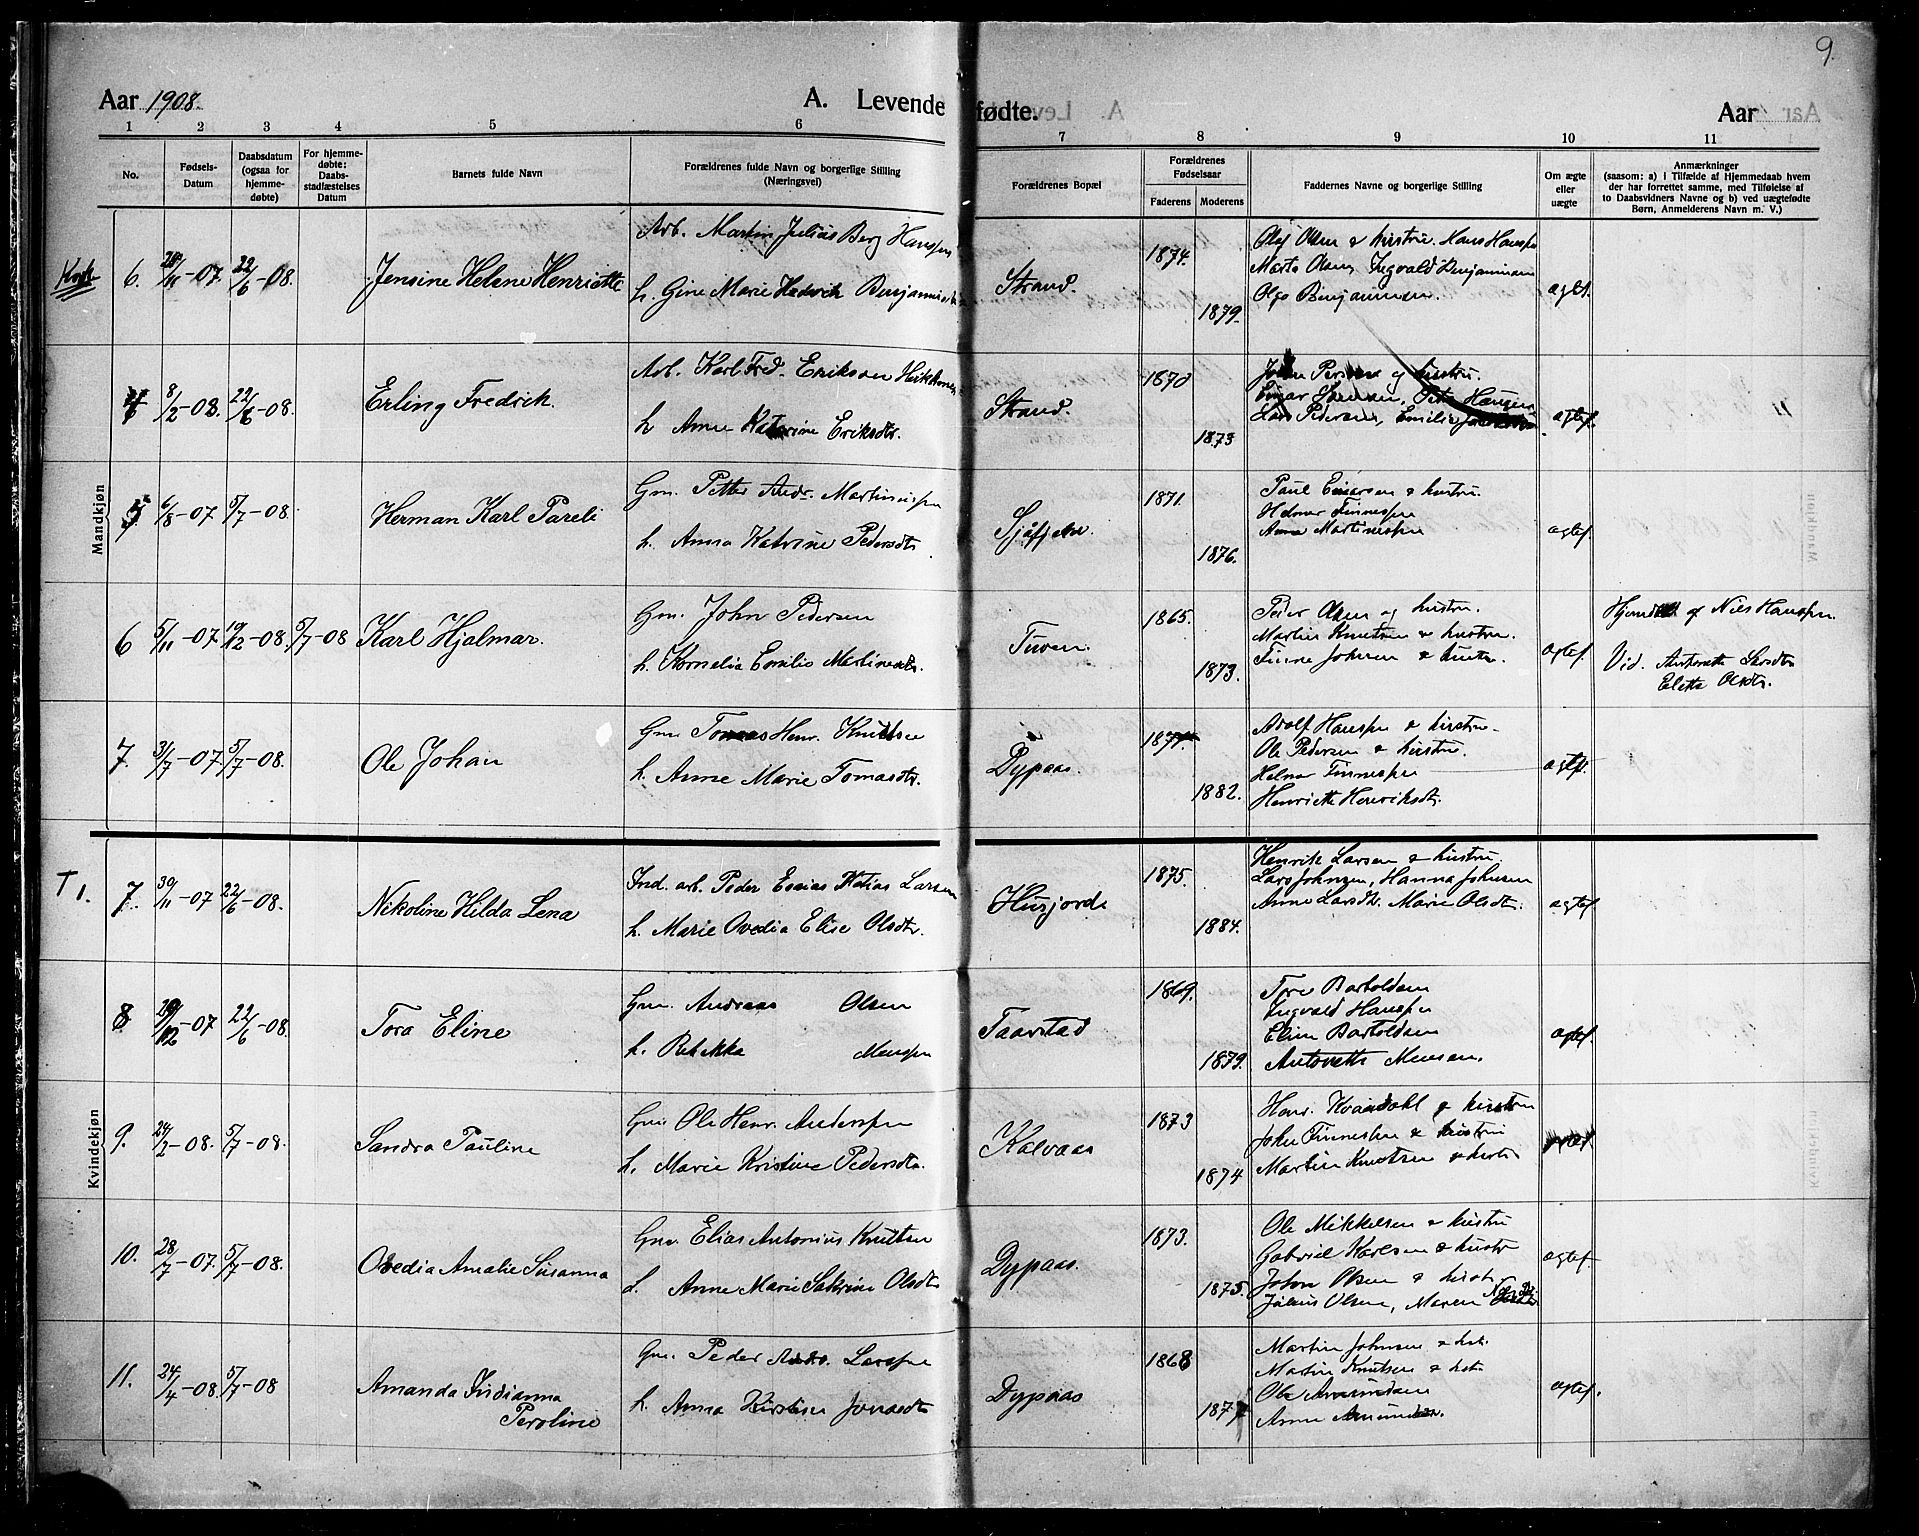 9.
Aar 1908. A. Levende fødte. Aar
1 2 3 4 5 6 7 8 9 10 11
No. Fødsels-Datum Daabsdatum (ogsaa for hjemme-døbte) For hjemme-døbte: Daabs-stadfæstelses Datum Barnets fulde Navn Forældrenes fulde Navn og borgerlige Stilling (Næringsvei) Forældrenes Bopæl Forældrenes Fødselsaar Faderens Moderens Faddernes Navne og borgerlige Stilling Om ægte eller uægte Anmærkninger (saasom: a) i Tilfælde af Hjemmedaab hvem der har forrettet samme, med Tilføielse af to Daabsvidners Navne og b) ved uægtefødte Børn, Anmelderens Navn m. V.)
Mandkjøn
6. 11-07 22/6-08. Jensine Helene Henriette
Arb. Martin Julius Berg Hansen
h. Gine Marie Hedvik Benjamins
Strand. 1874. 1879.
Olaf Olsen & hustru. Hans Hansen
Marta Olsen, Ingvald Benjaminsen
Olga Benjaminsen.
agtef.
8/2-08. 22/6-08. Erling Fredrik.
Arb. Karl Fred. Eriksen
h Anne Katarine Eriksdtr.
Strand. 1870 1873
og hustru.
Einar
Lars Pedersen, Emilie
agtef.
5 6/8-07 5/7-08. Herman Karl Pareli
Gm. Petter Andr. Martinussen
h. Anna Katrine Pedersdtr
Sjåfjeld. 1871. 1876.
Paul Einarsen & hustru.
Helmer Finnesen
Anna Martinesen
agtef.
6 5/11-07 19/2-08. 5/7-08 Karl Hjalmar.
Gm. John Pedersen
h. Kornelia Emilie Martinusdtr.
Tuven. 1865. 1873.
Peder Olsen og hustru.
Martin Knutsen & hustru.
Finne Johnsen & hustr.
agtef.
af Niels Hansen.
Vid. Antonette Larsdtr
Elette Olsdtr.
7. 31/7-07 5/7-08. Ole Johan
Gm. Tomas Henr. Knutsen
h. Anne Marie Tomasdtr.
Dypaas. 1882.
Adolf Hansen & hustru.
Ole Pedersen & hustru.
Helmer Finnesen
Henriette Henriksdtr.
agtef.
Kvindekjøn
T 1.
7. 30/11-07 22/6-08. Nikoline Hilda Lena
Ind. arb. Peder Esaias Larsen
h. Marie Ovedia Elise Olsdtr.
Husjord 1875. 1884.
Henrik Larsen & hustru.
Lars Johnsen, Hanna Johnsen
Anne Larsdtr. Marie Olsdtr.
agtef
8 12-07 22/6-08. Tora Eline
Gm. Andreas Olsen
h. Rebekka Monsen
Taarstad 1869. 1879.
Tore Bartoldsen
Ingvald Hansen
Eline Bartoldsen
Antonette Monsen.
agtef.
9. 24/2-08. 5/7-08. Sandra Pauline
Gm. Ole Henr. Andersen
h. Marie Kristine Pedersdtr.
Kalvaas 1873 1874
Henr. Kvandahl & hustru
John Finnesen & hustru
Martin Knutsen & hustr
10. 28/7-07. 5/7-08. Ovedia Amalie Susanna
Gm. Elias Antonius Knutsen
h. Anne Marie Sakrine Olsdtr
Dypaas. 1873. 1875.
Ole Mikkelsen & hustru
Gabriel Karlsen & hustru
Johan Olsen & hustr.
Julius Olsen, Maren
agtef.
11. 24/4-08. 5/7-08 Amanda Indianna
Peroline
Gm. Peder Andr. Larsen
h. Anna Kirstine Jonasdtr
Dypaas 1868 1877
Martin Johnsen & hst.
Martin Knutsen & hst
Ole Amundsen
Anne Amundsen.
agtef.